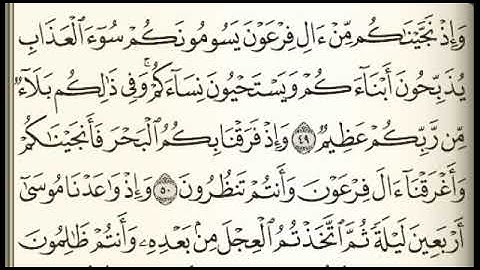 وَإِذْ نَجَّيْنَٰكُم مِّنْ ءَالِ فِرْعَوْنَ يَسُومُونَكُمْ سُوٓءَ ٱلْعَذَابِ
يُذَبِّحُونَ أَبْنَآءَكُمْ وَيَسْتَحْيُونَ نِسَآءَكُمْ ۚ وَفِى ذَٰلِكُم بَلَآءٌ
مِّن رَّبِّكُمْ عَظِيمٌ ٤٩ وَإِذْ فَرَقْنَا بِكُمُ ٱلْبَحْرَ فَأَنجَيْنَٰكُمْ
وَأَغْرَقْنَآ ءَالَ فِرْعَوْنَ وَأَنتُمْ تَنظُرُونَ ٥٠ وَإِذْ وَٰعَدْنَا مُوسَىٰٓ
أَرْبَعِينَ لَيْلَةً ثُمَّ ٱتَّخَذْتُمُ ٱلْعِجْلَ مِنۢ بَعْدِهِۦ وَأَنتُمْ ظَٰلِمُونَ